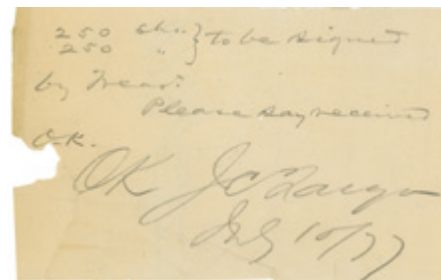 250 chs. } to be signed
250 "
by Treas:
Please say received
O.K.
OK J C Fargo
July 10/77